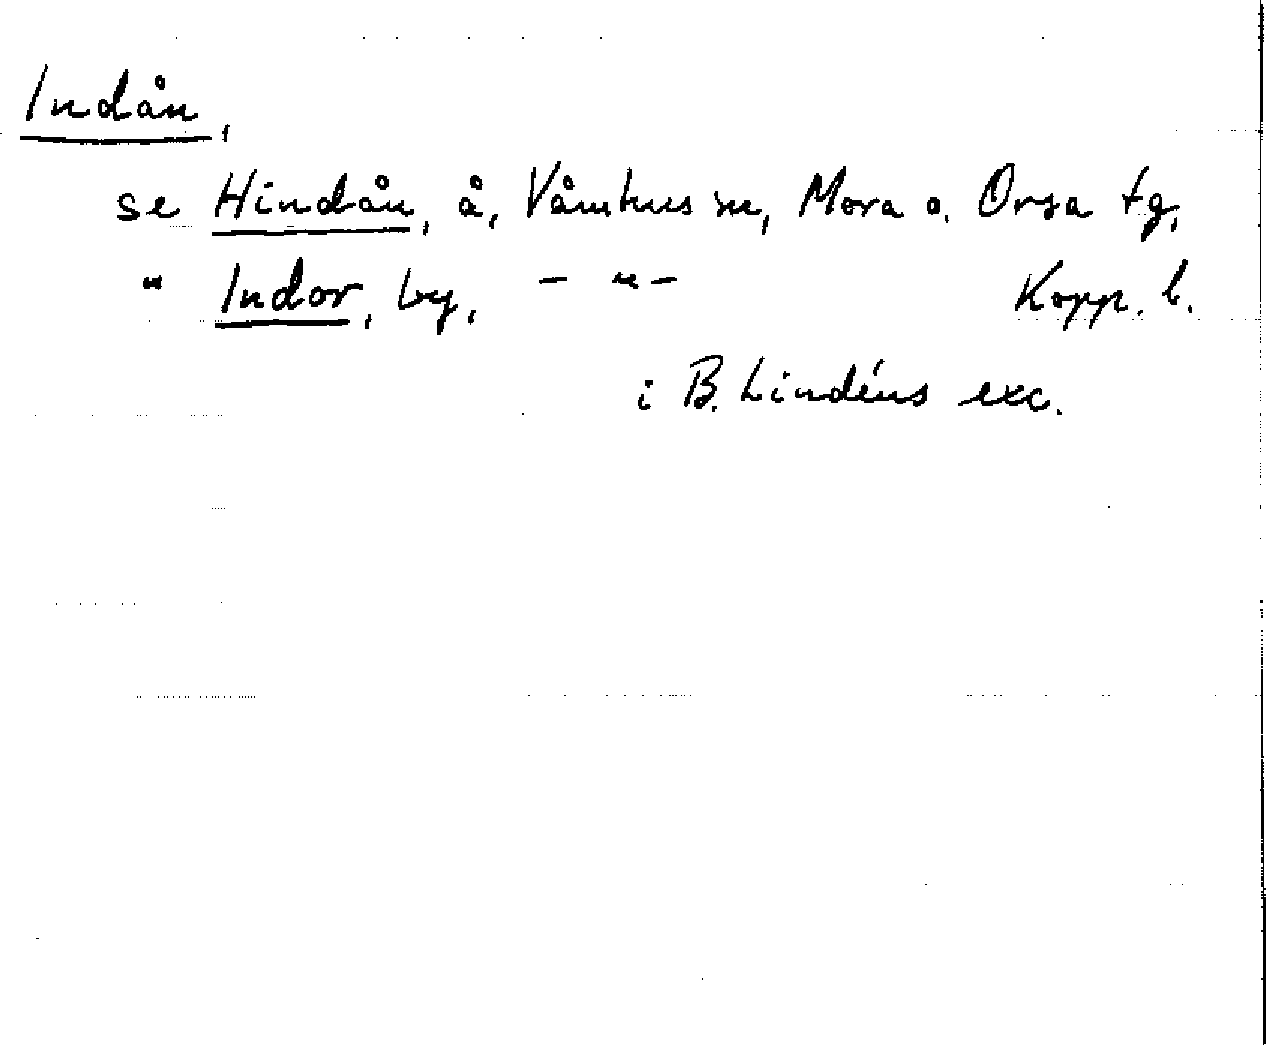 Indån,
se Hindån, å, Våmhus sn, Mora o. Orsa tg,
" Indor, by, - " - Kopp. l.
i B. Lindéns exc.